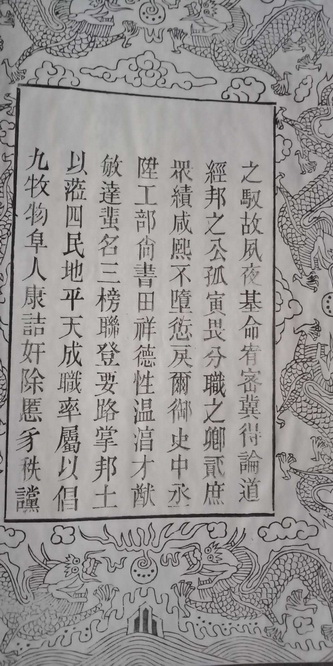 之馭故夙夜基命宥審冀得論道
經邦之公孤寅畏分職之卿貳庶
衆績咸熙不墮愆戾爾御史中丞
陞工部尚書田祥德性温涫才猷
敏達蜚名三榜聯登要路掌邦土
以蒞四民地平天成職率屬以倡
九牧物阜人康詰奸除慝予秩讜